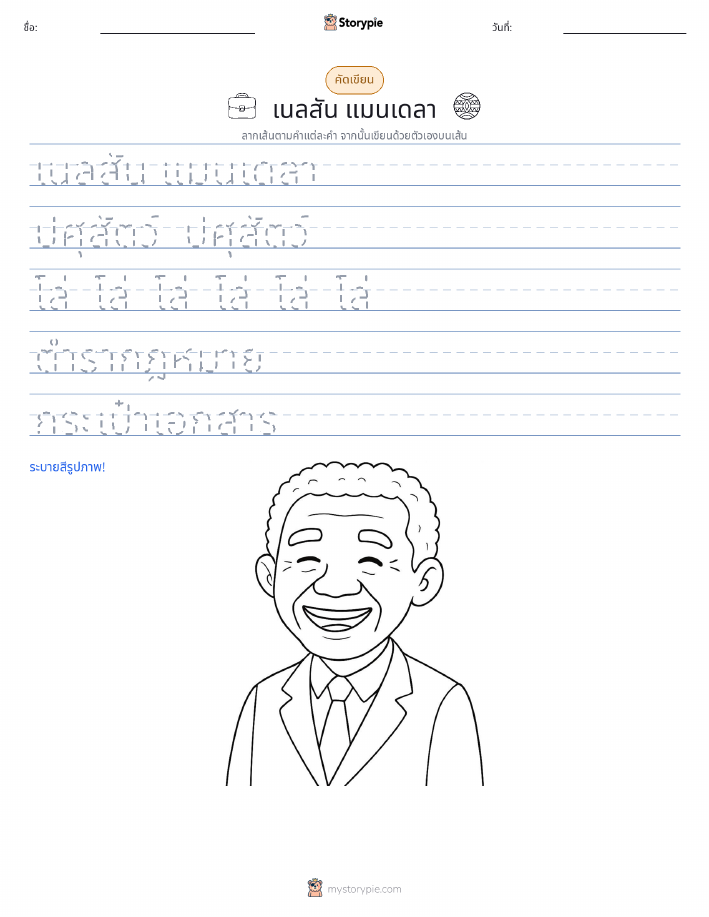 ชื่อ: Storypie วันที่:
คัดเขียน
เนลสัน แมนเดลา
ลากเส้นตามคำแต่ละคำ จากนั้นเขียนด้วยตัวเองบนเส้น
เนลสัน แมนเดลา
ปศุสัตว์ ปศุสัตว์
โล่ โล่ โล่ โล่ โล่ โล่
ตำรากฎหมาย
กระเป๋าเอกสาร
ระบายสีรูปภาพ!
mystorypie.com